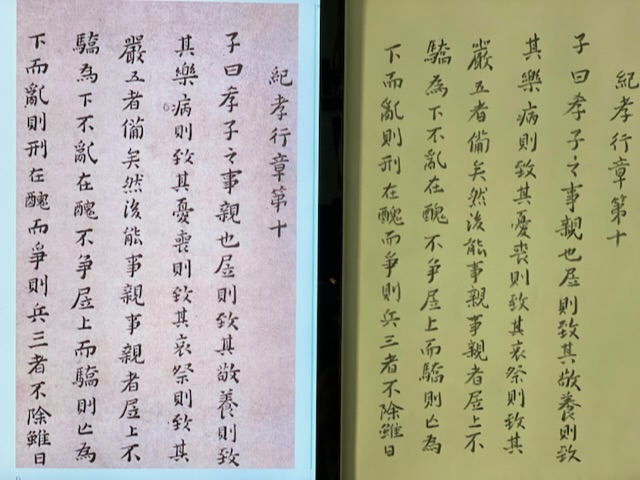 紀孝行章第十
子曰孝子之事親也居則致其敬養則致
其樂病則致其憂喪則致其哀祭則致其
嚴五者備矣然後能事親事親者居上不
驕為下不亂在醜不争居上而驕則亡為
下而亂則刑在醜而爭則兵三者不除雖日
紀孝行章第十
子曰孝子之事親也居則致其敬養則致
其樂病則致其憂喪則致其哀祭則致其
嚴五者備矣然後能事親事親者居上不
驕為下不亂在醜不争居上而驕則亡為
下而亂則刑在醜而爭則兵三者不除雖日